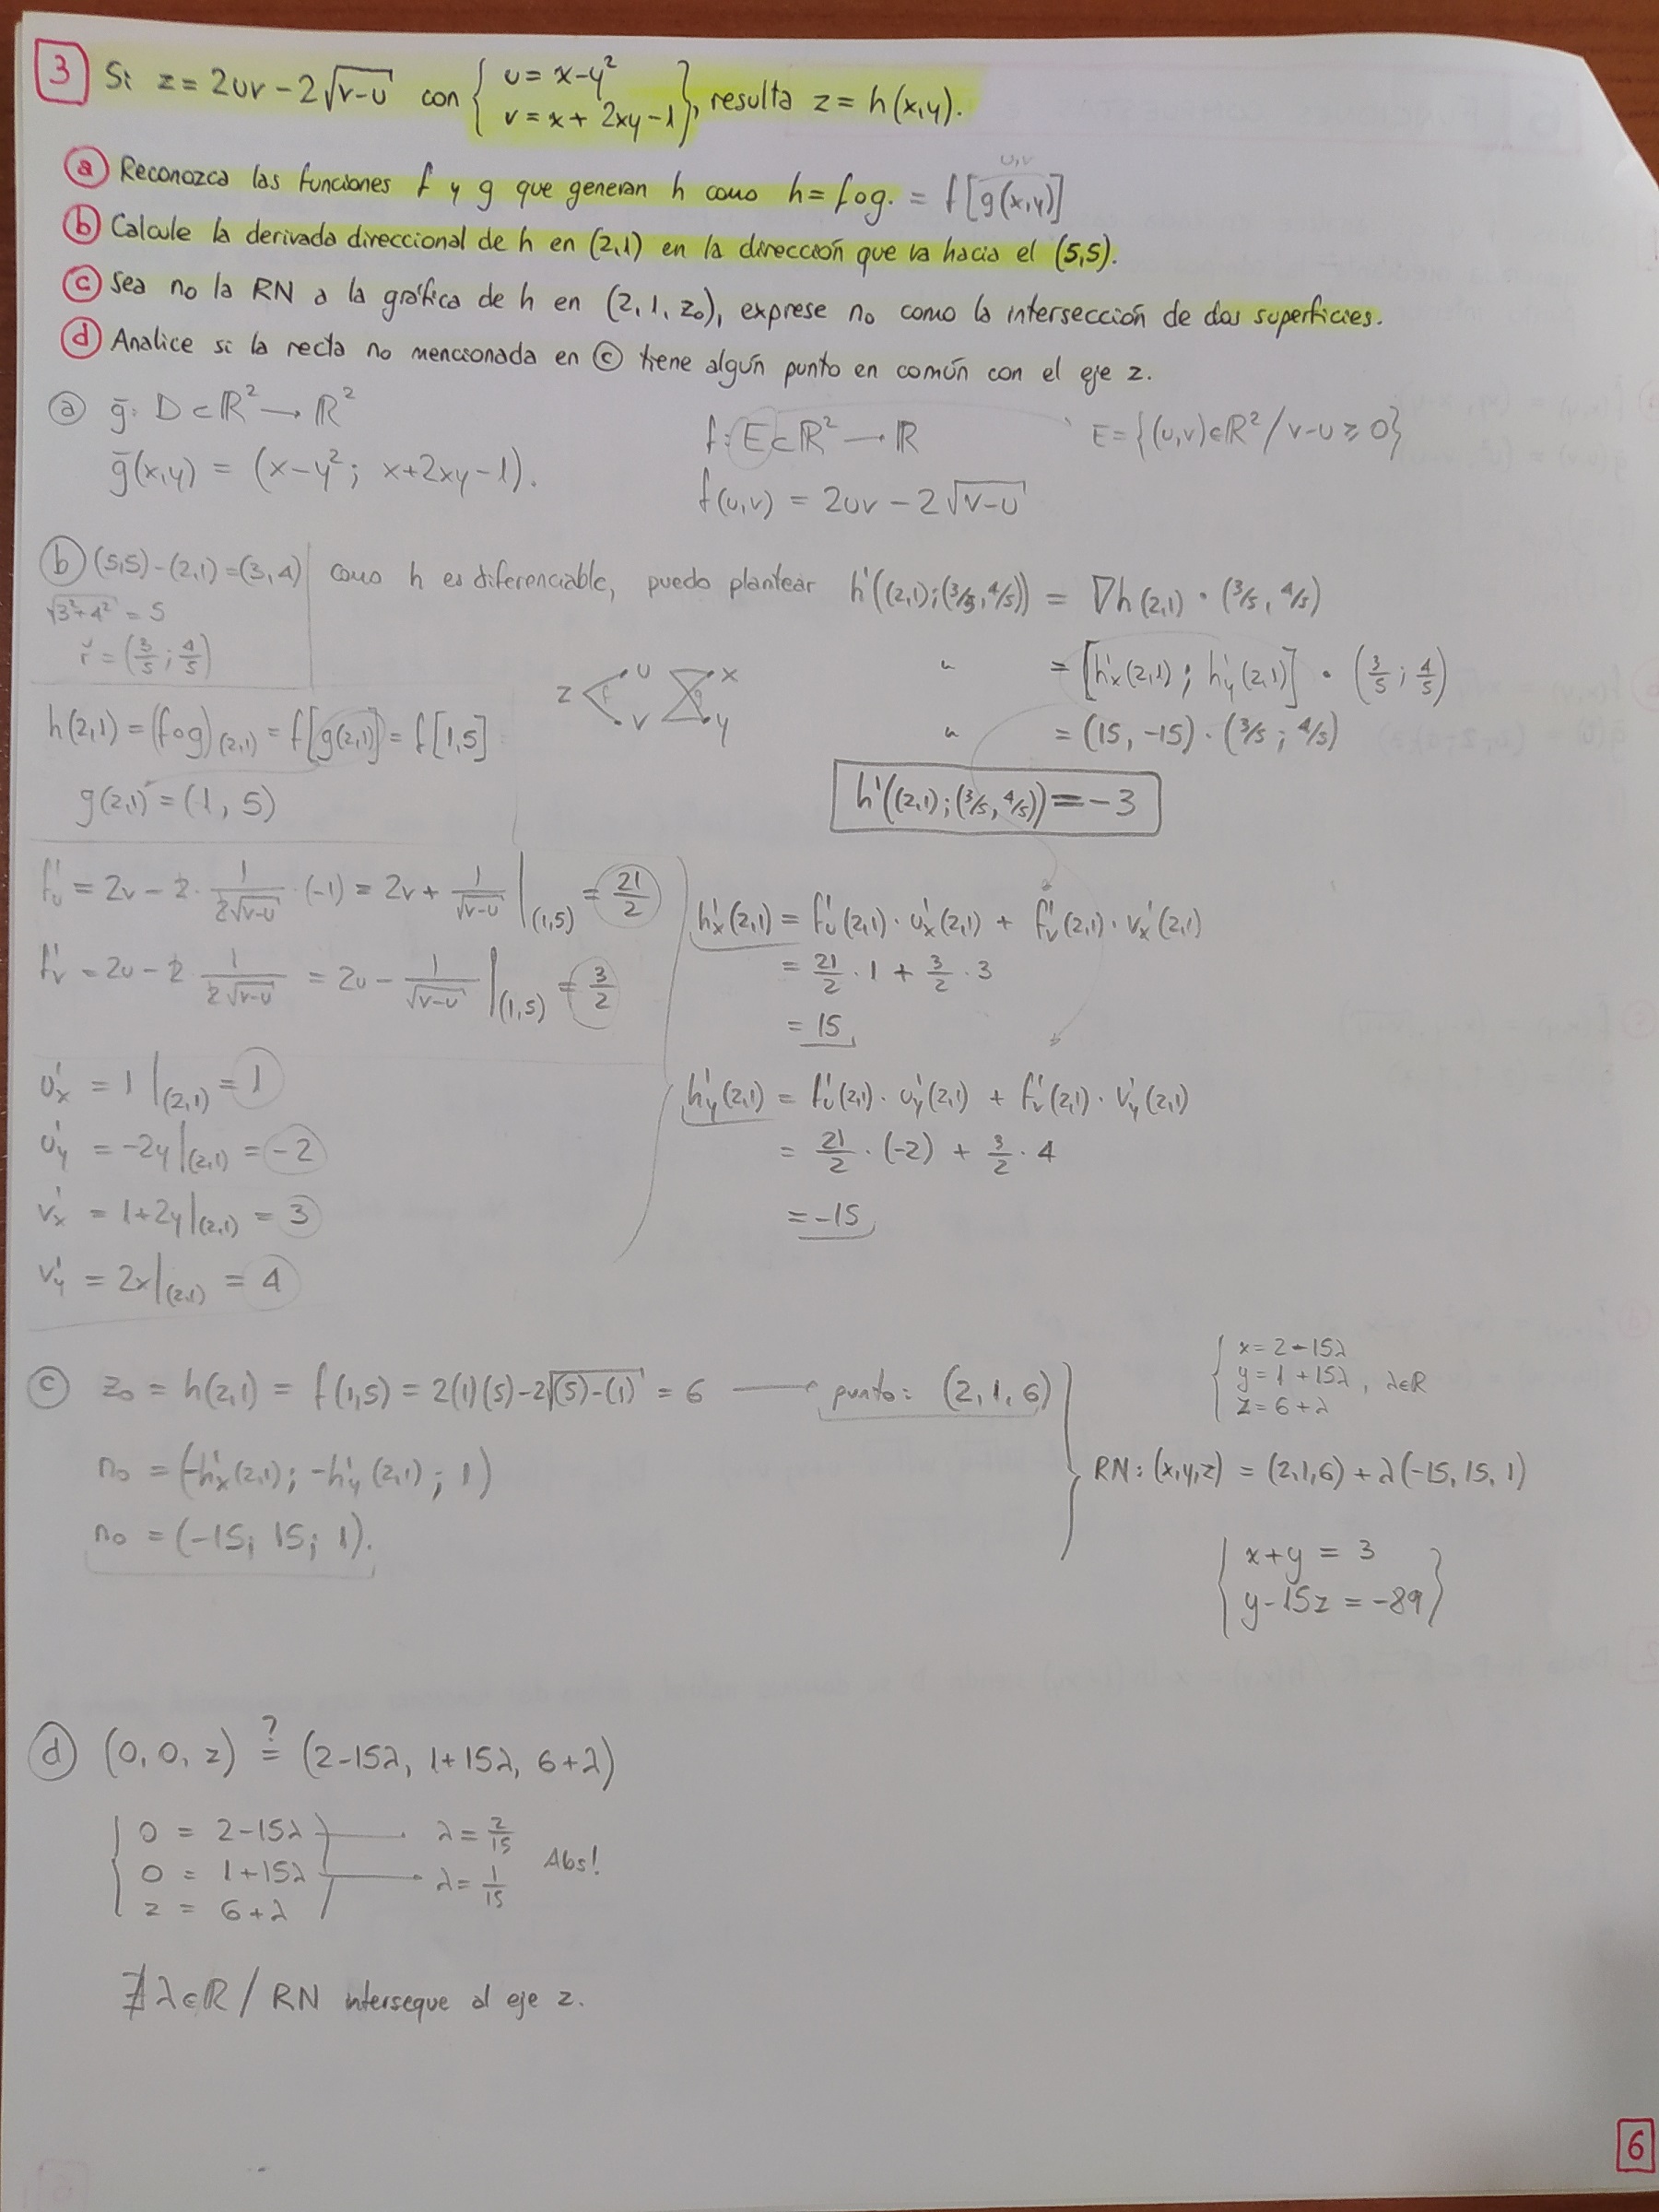 3 Si z = 2uv - 2√(v-u) con { u = x-y²
v = x + 2xy - 1 }, resulta z = h(x,y).
a Reconozca las funciones f y g que generan h como h = fog. = f[g(x,y)]
u,v
b Calcule la derivada direccional de h en (2,1) en la dirección que va hacia el (5,5).
c Sea no la RN a la gráfica de h en (2, 1, z₀), exprese no como la intersección de dos superficies.
d Analice si la recta no mencionada en c tiene algún punto en común con el eje z.
a ḡ: D⊂ℝ² → ℝ²
ḡ(x,y) = (x-y²; x+2xy-1).
f: E⊂ℝ² → ℝ
E = {(u,v)∈ℝ² / v-u ≥ 0}
f(u,v) = 2uv - 2√(v-u)
b (5,5)-(2,1)=(3,4)
√(3²+4²) = 5
ř = (3/5; 4/5)
Como h es diferenciable, puedo plantear h'((2,1);(3/5,4/5)) = ∇h(2,1) · (3/5, 4/5)
" = [h'x(2,1); h'y(2,1)] · (3/5; 4/5)
" = (15, -15) · (3/5; 4/5)
h'((2,1);(3/5,4/5)) = -3
z f u v g x y
h(2,1) = (fog)(2,1) = f[g(2,1)] = f[1,5]
g(2,1) = (1, 5)
f'u = 2v - 2 · 1/(2√(v-u)) · (-1) = 2v + 1/√(v-u) |(1,5) = 21/2
f'v = 2u - 2 · 1/(2√(v-u)) = 2u - 1/√(v-u) |(1,5) = 3/2
u'x = 1 |(2,1) = 1
u'y = -2y |(2,1) = -2
v'x = 1+2y |(2,1) = 3
v'y = 2x |(2,1) = 4
h'x(2,1) = f'u(2,1) · u'x(2,1) + f'v(2,1) · v'x(2,1)
= 21/2 · 1 + 3/2 · 3
= 15
h'y(2,1) = f'u(2,1) · u'y(2,1) + f'v(2,1) · v'y(2,1)
= 21/2 · (-2) + 3/2 · 4
= -15
c z₀ = h(2,1) = f(1,5) = 2(1)(5) - 2√((5)-(1)) = 6 → punto: (2, 1, 6)
n₀ = (-h'x(2,1); -h'y(2,1); 1)
n₀ = (-15; 15; 1).
{ x = 2 - 15λ
y = 1 + 15λ , λ∈ℝ
z = 6 + λ
RN: (x,y,z) = (2,1,6) + λ(-15, 15, 1)
{ x+y = 3
y - 15z = -89 }
d (0, 0, z) ?= (2-15λ, 1+15λ, 6+λ)
{ 0 = 2-15λ → λ = 2/15
0 = 1+15λ → λ = 1/15 Abs!
z = 6+λ
∄ λ∈ℝ / RN interseque al eje z.
6